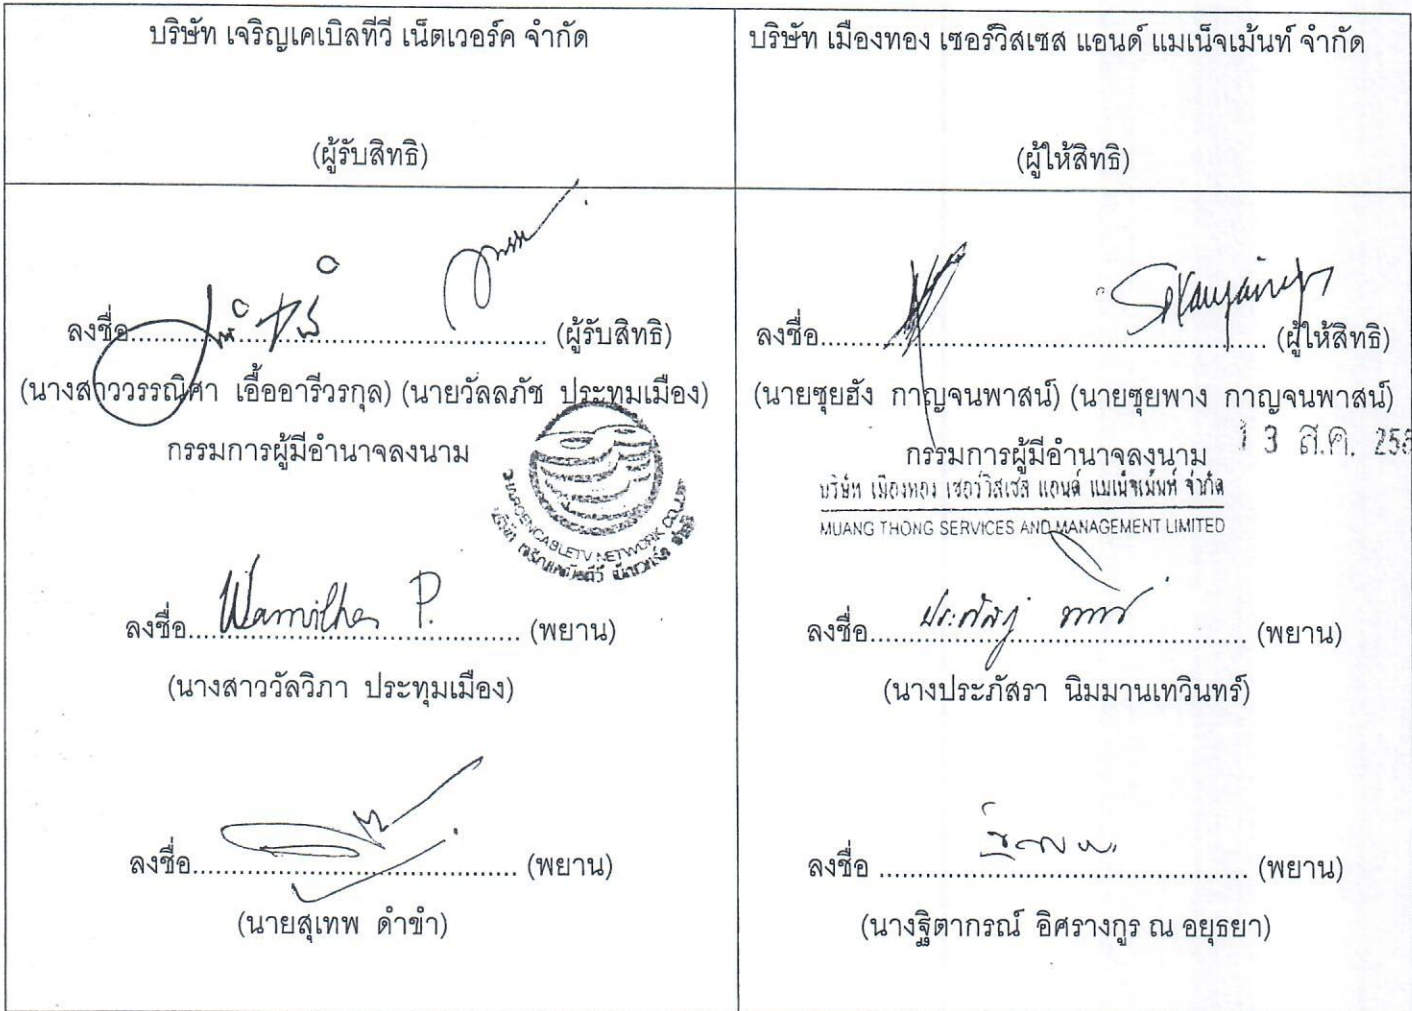 บริษัท เจริญเคเบิลทีวี เน็ตเวอร์ค จำกัด
(ผู้รับสิทธิ)
ลงชื่อ.................................................... (ผู้รับสิทธิ)
(นางสาววรรณิศา เอื้ออารีวรกุล) (นายวัลลภัช ประทุมเมือง)
กรรมการผู้มีอำนาจลงนาม
CHAROENCABLETV NETWORK CO.,LTD.
บริษัท เจริญเคเบิลทีวี เน็ตเวอร์ค จำกัด
ลงชื่อ.......................................... (พยาน)
(นางสาววัลวิภา ประทุมเมือง)
ลงชื่อ.......................................... (พยาน)
(นายสุเทพ ดำขำ)
บริษัท เมืองทอง เซอร์วิสเซส แอนด์ แมเน็จเม้นท์ จำกัด
(ผู้ให้สิทธิ)
ลงชื่อ......................................................... (ผู้ให้สิทธิ)
(นายซุยฮัง กาญจนพาสน์) (นายซุยพาง กาญจนพาสน์)
กรรมการผู้มีอำนาจลงนาม
13 ส.ค.
บริษัท เมืองทอง เซอร์วิสเซส แอนด์ แมเน็จเม้นท์ จำกัด
MUANG THONG SERVICES AND MANAGEMENT LIMITED
ลงชื่อ................................................ (พยาน)
(นางประภัสรา นิมมานเทวินทร์)
ลงชื่อ ............................................... (พยาน)
(นางฐิตากรณ์ อิศรางกูร ณ อยุธยา)